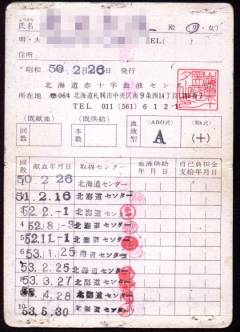 氏名 殿 男・女
明・大 TEL(
住所
昭和 50.2.26 発行
北海道赤十字血液センター
所在地 〒064 北海道札幌市中央区南9条西14丁目
TEL 011 (561) 612
(既献血) 本 (既供給) 本 血液型 (ABO式) A (Rh式) (+)
回数 献血年月日 取扱センター 血液供給年月日 自己負担金支給年月日
50.2.26 北海道センター
51.2.16 北海道センター
52.2.-1 北海道センター
52.8.-3 北海道センター
52.11.-1 北海道センター
53.1.25 北海道センター
53.2.25 北海道センター
53.3.27 北海道センター
53.4.28 北海道センター
53.5.30